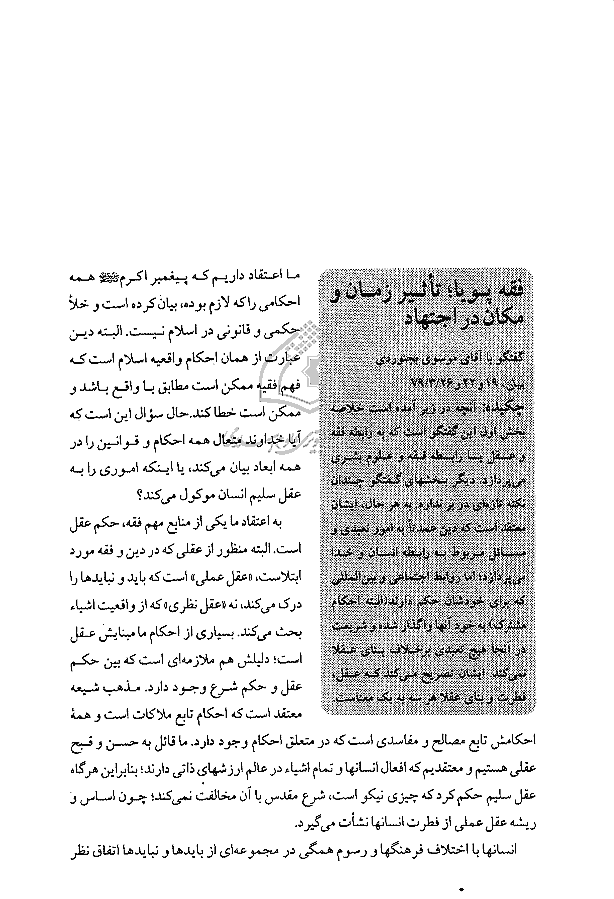 فقه پویا؛ تأثیر زمان و
مکان در اجتهاد
گفتگو با آقای موسوی بجنوردی
بیان، ۱۹ و ۲۲ و ۷۹/۳/۲۶
چکیده: آنچه در زیر آمده است خلاصه
بخش اول این گفتگو است که به رابطه فقه
و عقل و یا رابطه فقه و علوم بشری
می‌پردازد. دیگر بخشهای گفتگو چندان
نکته تازه‌ای در بر ندارد. به هر حال، ایشان
معتقد است که دین عمدتاً به امور تعبدی و
مسائل مربوط به رابطه انسان و خدا
می‌پردازد؛ اما روابط اجتماعی و بین‌المللی
که برای خودشان حکم دارند (البته احکام
) به خود آنها واگذار شده و شریعت
در آنجا هیچ تعبدی برخلاف بنای عقلا
نمی‌کند. ایشان تصریح می‌کند که عقل،
فطرت و بنای عقلا هر سه به یک معناست.
ما اعتقاد داریم که پیغمبر اکرمﷺ همه
احکامی را که لازم بوده، بیان کرده است و خلأ
حکمی و قانونی در اسلام نیست. البته دین
عبارت از همان احکام واقعیه اسلام است که
فهم فقیه ممکن است مطابق با واقع باشد و
ممکن است خطا کند. حال سؤال این است که
آیا خداوند متعال همه احکام و قوانین را در
همه ابعاد بیان می‌کند، یا اینکه اموری را به
عقل سلیم انسان موکول می‌کند؟
به اعتقاد ما یکی از منابع مهم فقه، حکم عقل
است. البته منظور از عقلی که در دین و فقه مورد
ابتلاست، «عقل عملی» است که باید و نبایدها را
درک می‌کند، نه «عقل نظری» که از واقعیت اشیاء
بحث می‌کند. بسیاری از احکام ما مبنایش عقل
است؛ دلیلش هم ملازمه‌ای است که بین حکم
عقل و حکم شرع وجود دارد. مذهب شیعه
معتقد است که احکام تابع ملاکات است و همهٔ
احکامش تابع مصالح و مفاسدی است که در متعلق احکام وجود دارد. ما قائل به حسن و قبح
عقلی هستیم و معتقدیم که افعال انسانها و تمام اشیاء در عالم ارزشهای ذاتی دارند؛ بنابراین هرگاه
عقل سلیم حکم کرد که چیزی نیکو است، شرع مقدس با آن مخالفت نمی‌کند؛ چون اساس و
ریشه عقل عملی از فطرت انسانها نشأت می‌گیرد.
انسانها با اختلاف فرهنگها و رسوم همگی در مجموعه‌ای از بایدها و نبایدها اتفاق نظر